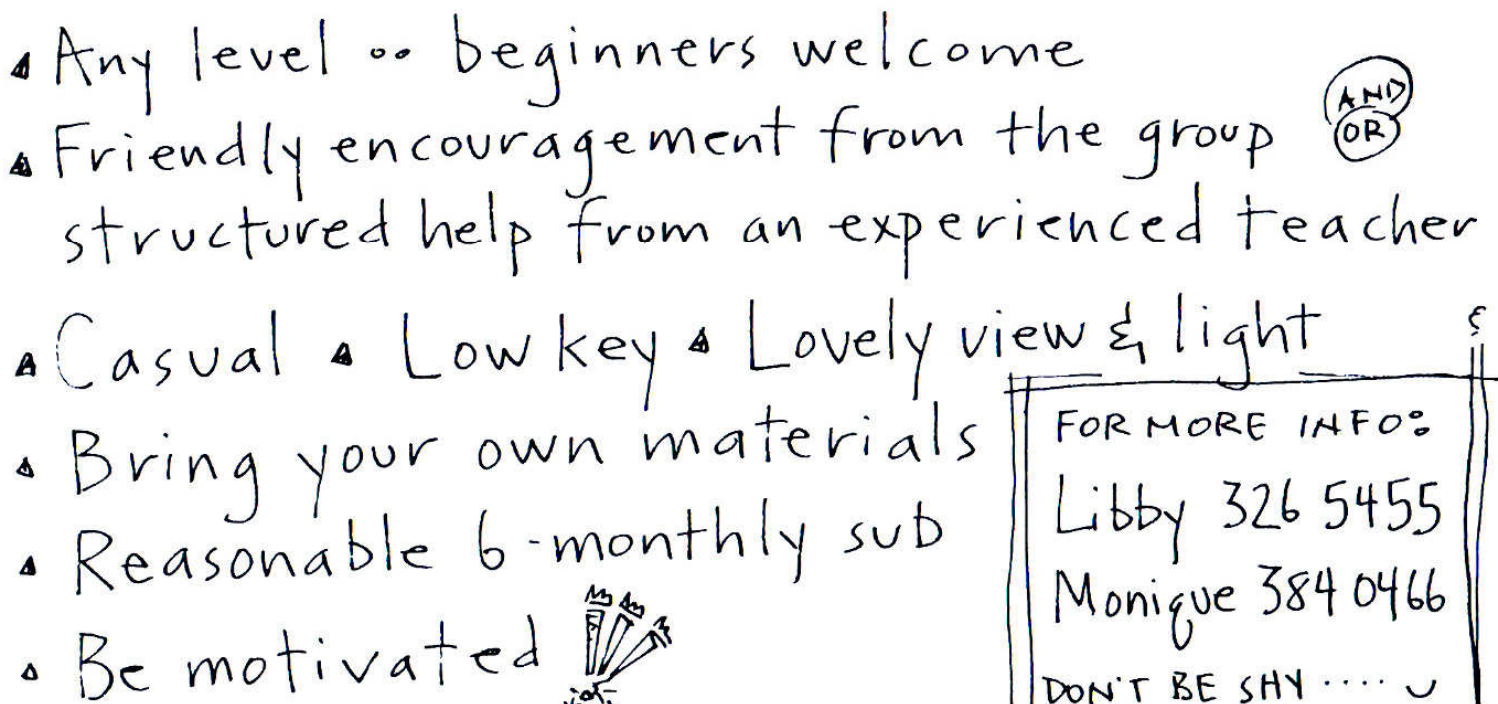 Any level .. beginners welcome
Friendly encouragement from the group AND OR
structured help from an experienced teacher
Casual Low key Lovely view & light
Bring your own materials
Reasonable 6-monthly sub
Be motivated
FOR MORE INFO:
Libby 326 5455
Monique 384 0466
DON'T BE SHY ....